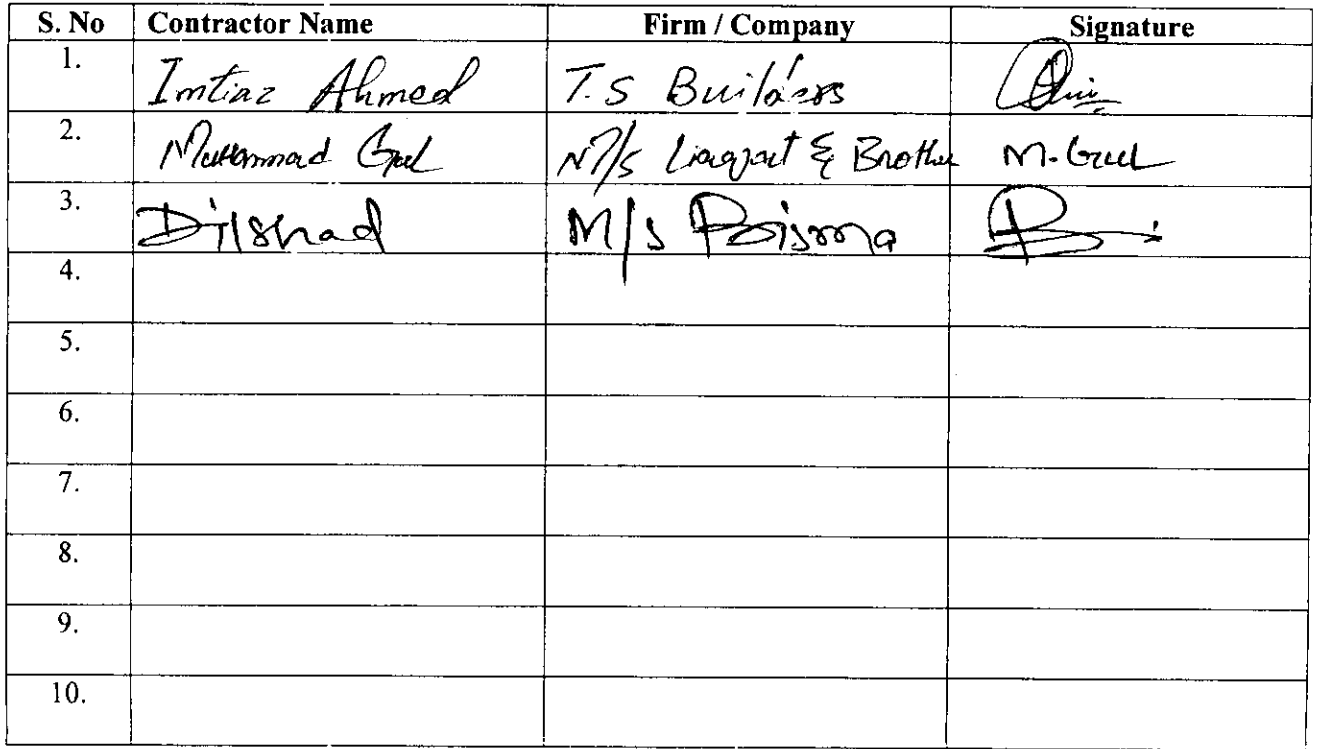 S. No Contractor Name Firm / Company Signature
1. Imtiaz Ahmed T.S Builders
2. Muhammad Gul M/s Liaqat & Brother M. Gul
3. Dilshad M/s Bisma
4.
5.
6.
7.
8.
9.
10.